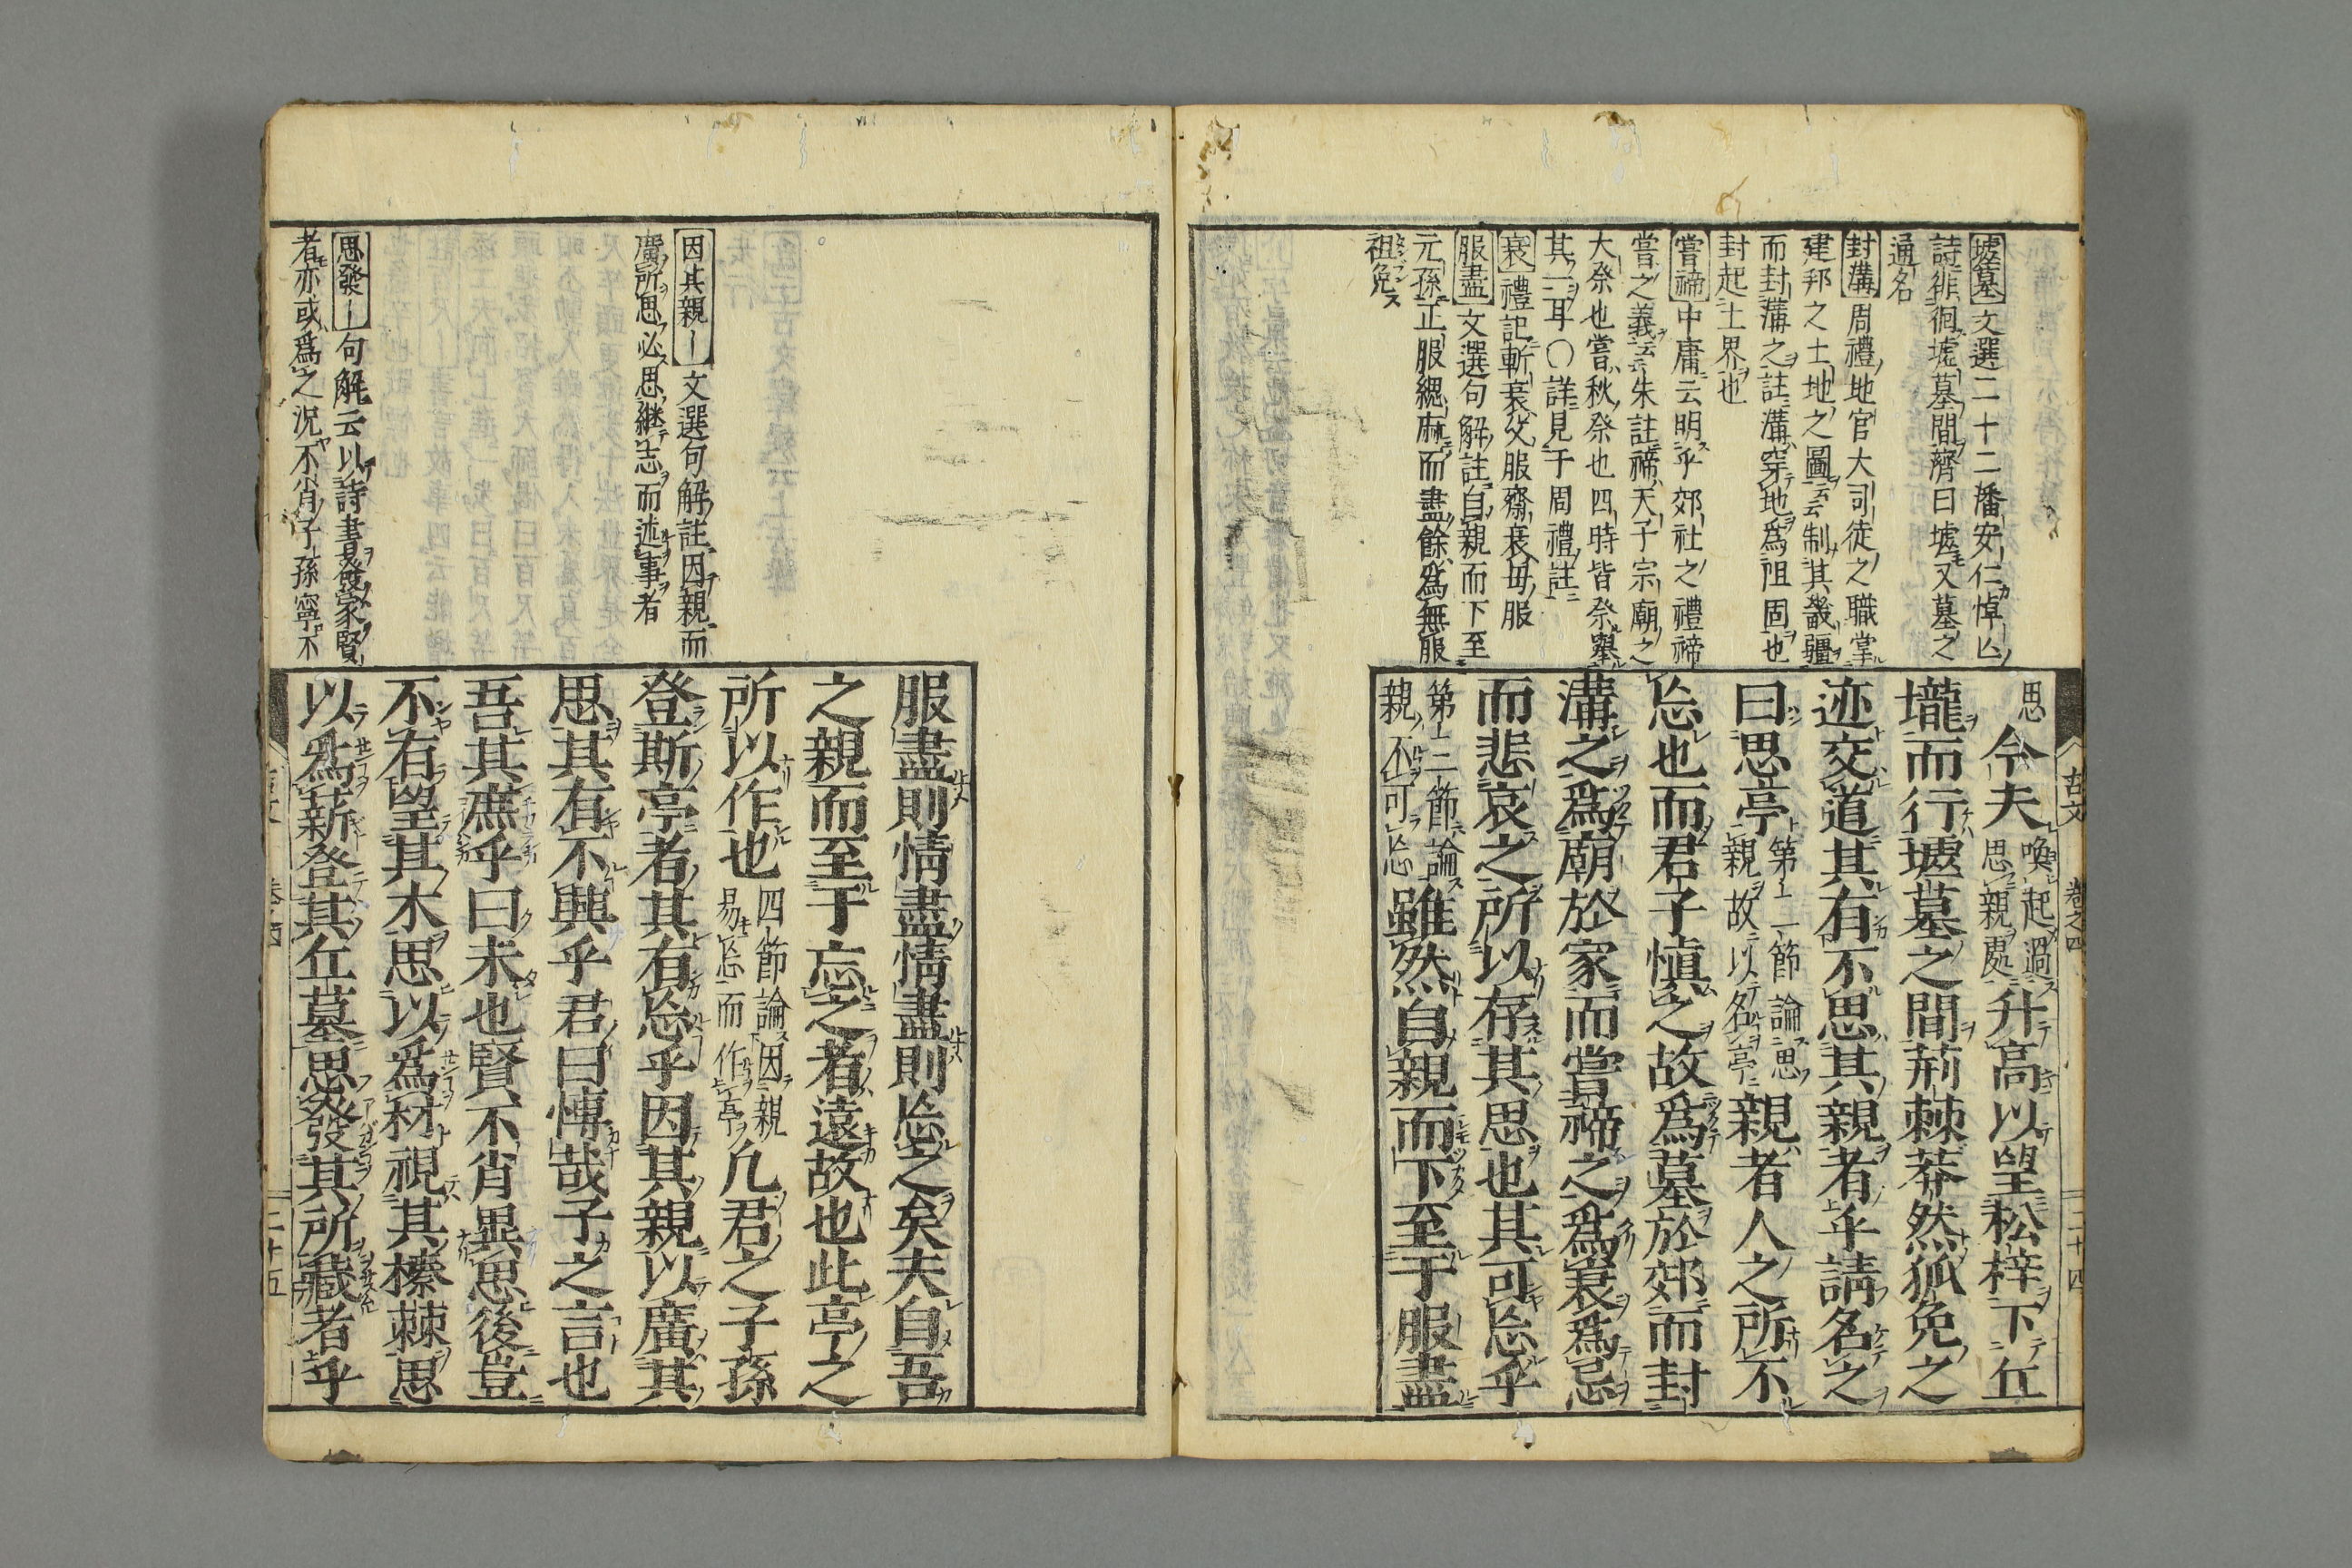 墟墓文選二十二潘安仁悼亾
詩徘徊墟墓間濟曰墟又墓之
通名
封溝周禮地官大司徒之職掌
建邦之土地之圖云云制其畿疆
而封溝之註溝穿地爲阻固也
封起土界也
嘗禘中庸云明乎郊社之禮禘
嘗之義云云朱註禘天子宗廟之
大祭也嘗秋祭也四時皆祭擧
其一耳〇詳見于周禮註
衰禮記斬衰父服齋衰毋服
服盡文選句解註自親而下至
元孫正服緦麻而盡餘爲無服
祖免ス
思
今夫
喚起過
思親處
升高以望松梓下丘
壠而行墟墓之間荊棘莽然狐兔之
迹交道其有不思其親者乎請名之
曰思亭
第二節論思
親故以名亭
親者人之所不
忘也而君子愼之故爲墓於郊而封
溝之爲廟於家而嘗禘之爲衰爲忌
而悲哀之所以存其思也其可忘乎
第三節論
親不可忘
雖然自親而下至于服盡
古文
卷之四
二十四
因其親丨文選句解註因親而
廣所思必思繼志而述事者
思發丨句解云以詩書發冢賢
者亦或爲之況不肖子孫寧不
服盡則情盡情盡則忘之矣夫自吾
之親而至于忘之者遠故也此亭之
所以作也
四節論因親
易忘而作亭
凡君之子孫
登斯亭者其有忘乎因其親以廣其
思其有不興乎君曰博哉子之言也
吾其庶乎曰未也賢不肖異思後豈
不有望其木思以爲材視其榛棘思
以爲薪登其丘墓思發其所藏者乎